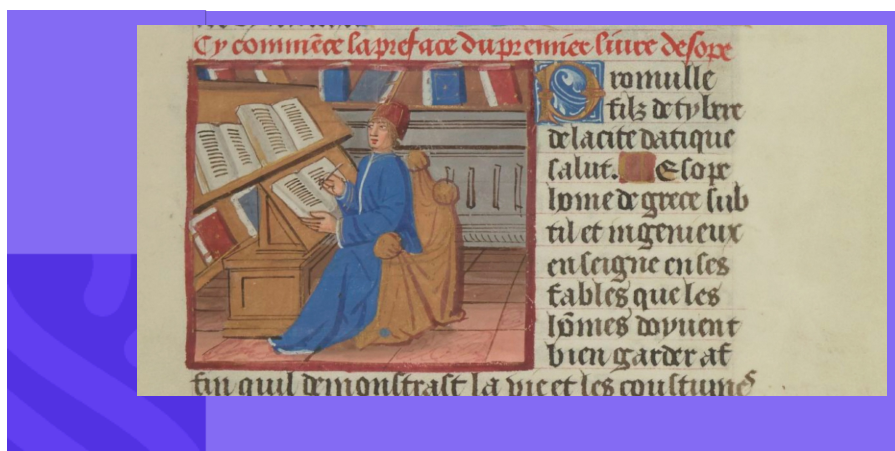 Cy commēce la preface du premier liure desope
Promulle
filz de tybere
de la cite datique
salut. Esope
home de grece sub
til et ingenieux
enseigne en ses
fables que les
hōmes doyuent
bien garder af
fin quil demonstrast la vie et les coustumes